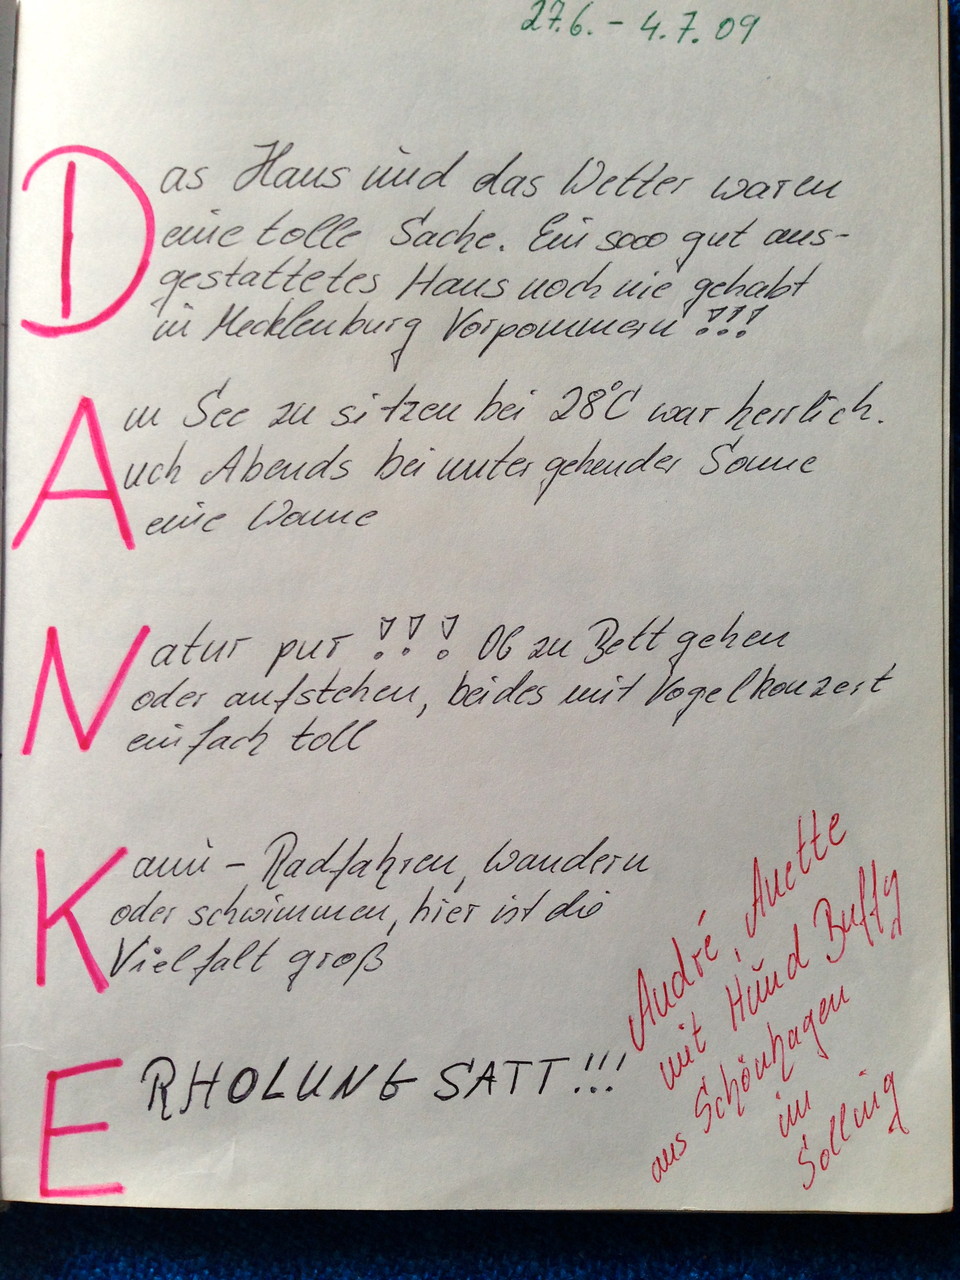 27.6. - 4.7.09
Das Haus und das Wetter waren
eine tolle Sache. Ein sooo gut aus-
gestattetes Haus noch nie gehabt
in Mecklenburg Vorpommern!!!
Am See zu sitzen bei 28°C war herrlich.
Auch Abends bei untergehender Sonne
eine Wonne
Natur pur !!! Ob zu Bett gehen
oder aufstehen, beides mit Vogelkonzert
einfach toll
Kanu - Radfahren, wandern
oder schwimmen, hier ist die
Vielfalt groß
ERHOLUNG SATT!!!
André, Anette
mit Hund Buffy
aus Schönhagen
im
Solling